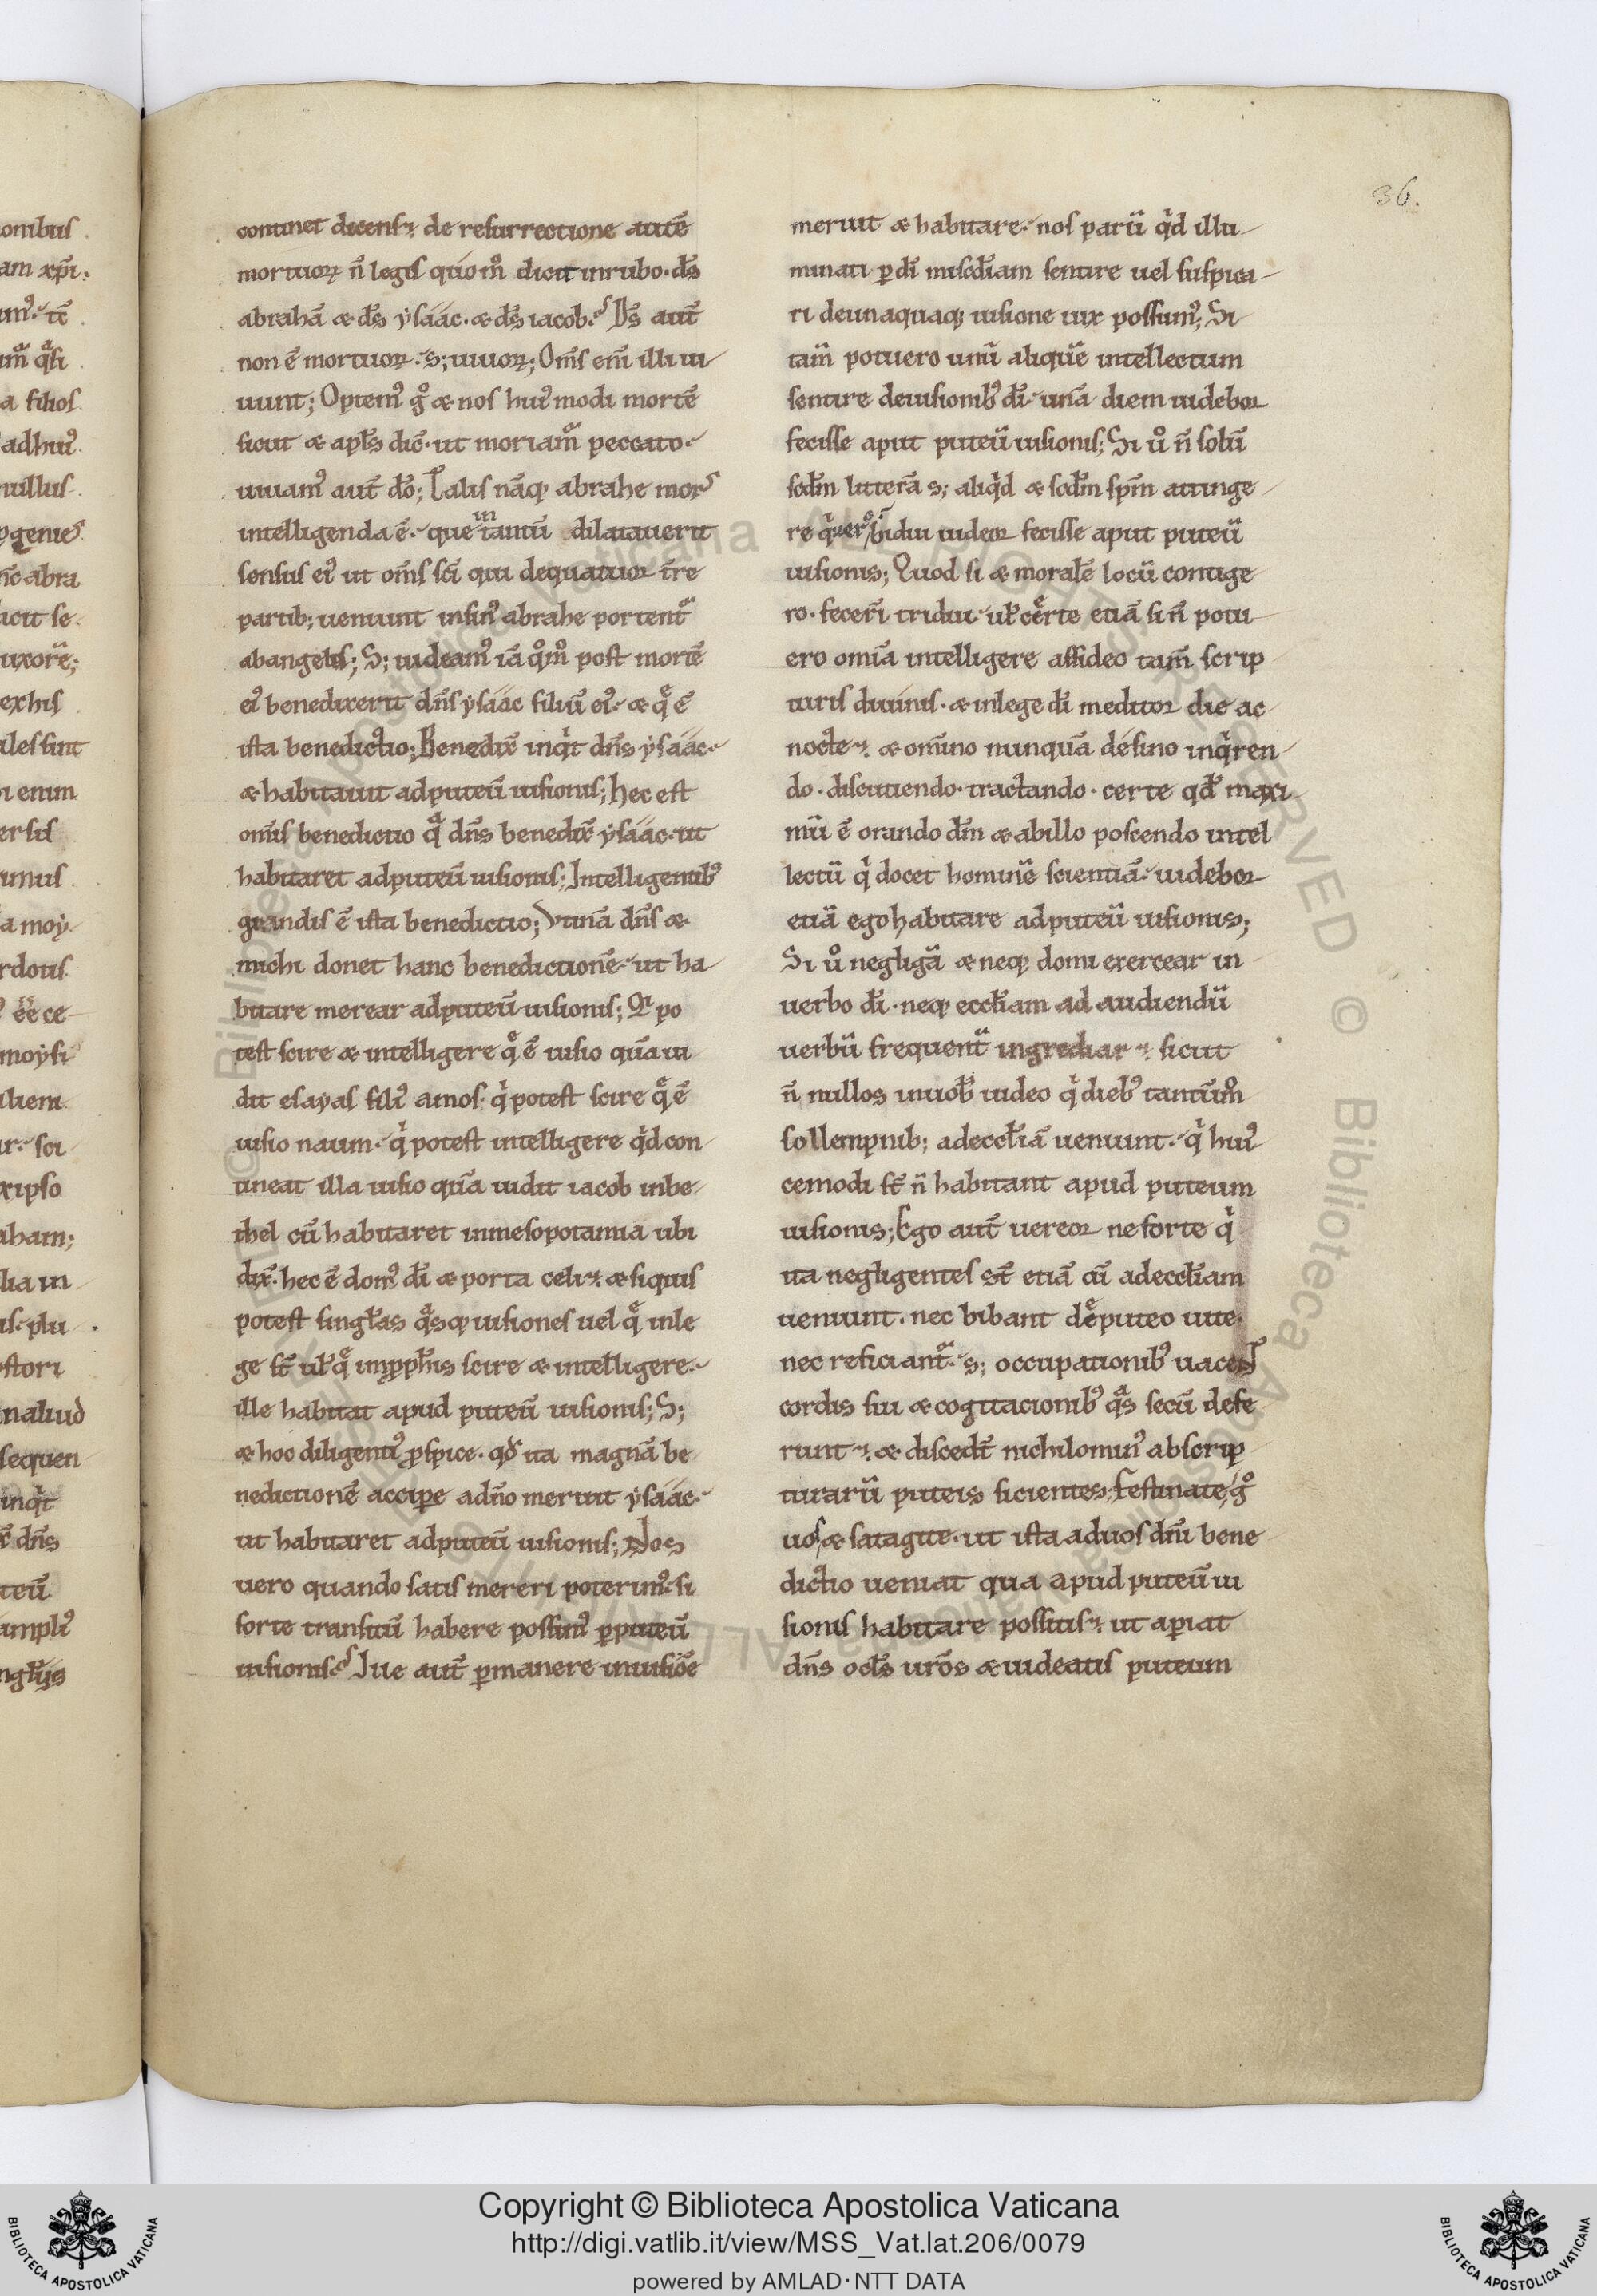 36.
continet dicens; de resurrectione autē
mortuoꝝ n̄ legis quom̊ dicit inrubo · ds̄
abrahā & ds̄ ysáác · & ds̄ iacob. Ds̄ aut̄
non ē mortuoꝝ · s; uiuoꝝ; Oms̄ eni̅ illi ui
uunt; Optemꝰ g̊ & nos huiꝰmodi mortē
sicut & apls̄ dic̄ · ut moriamᷣ peccato ·
uiuamꝰ aut̄ do̅; Talis nāq; abrahe mors
intelligenda ē · que in tantū dilatauerit
sensus eiꝰ ut oms̄ sc̄i qui dequatuor tr̄e
partib; ueniunt insinū abrahe portentᷣ
abangelis; S; uideamꝰ iā qͦm̊ post mortē
eiꝰ benedixerit dn̄s ysáác filiū eiꝰ · & qͤ ē
ista benedictio; Benedix̄ inqͥt dn̄s ysáác ·
& habitauit adputeū uisionis; hec est
omīs benedictio qͣ dn̄s benedix̄ ysáác · ut
habitaret adputeū uisionis; Intelligentibꝰ
grandis ē ista benedictio; Vtinā dn̄s &
michi donet hanc benedictionē · ut ha
bitare merear adputeū uisionis; Qͥ po
test scire & intelligere qͤ ē uisio quā ui
dit esayas filiꝰ amos · qͥ potest scire qͤ ē
uisio naum · qͥ potest intelligere qͥd con
tineat illa uisio quā uidit iacob inbe
thel cū habitaret inmesopotamia ubi
dix̄ · hec ē domꝰ dī & porta celi · & siquis
potest singlas qͣsq; uisiones uel qͤ inle
ge st̄ ul̄ qͤ inpph̄is scire & intelligere ·
ille habitat apud puteū uisionis; S;
& hoc diligentiꝰ ꝓspice · qd̄ ita magnā be
nedictionē accipe adn̄o meruit ysáác ·
ut habitaret adputeū uisionis; Nos
uero quando satis mereri poterimꝰ · si
forte transitū habere possimꝰ ꝑputeū
uisionis Iue aut̄ ꝑmanere inuisiōe
meruit & habitare · nos parū qͥd illu
minati ꝑ dī mis̄cdiam sentire uel suspica
ri deunaquaq; uisione uix possumꝰ; Si
tam̄ potuero unū aliquē intellectum
sentire deuisionibꝰ dī · unā diem uidebor
fecisse aput puteū uisionis; Si ů n̄ solū
scd̄m litterā s; aliqͥd & scd̄m sp̄m attinge
re qͥuero biduū uideor fecisse aput puteū
uisionis; Quod si & moralē locū contige
ro · fecerī tridui · ul̄ certe etiā si n̄ potu
ero omīa intelligere assideo tam̄ scrip
turis diuinis · & inlege dī meditor die ac
nocte · & omīno nunquā desino inqͥren
do · discutiendo · tractando · certe qd̄ maxi
mū ē orando dm̄ & abillo poscendo intel
lectū qͥ docet hominē scientiā · uidebor
etiā ego habitare adputeū uisionis;
Si ů negligā & neq; domi exercear in
uerbo dī · neq; eccl̄iam ad audiendū
uerbū frequentᷣ ingrediar · sicut
n̄ nullos inuob̄ uideo qͥ diebꝰ tantūm̊
sollempnib; adeccl̄iā ueniunt · qͥ huiꝰ
cemodi st̄ n̄ habitant apud puteum
uisionis; Ego aut̄ uereor ne forte qͥ
ita negligentes st̄ etiā cū adeccl̄iam
ueniunt · nec bibant de puteo uite ·
nec reficiantᷣ · s; occupationibꝰ uacēt
cordis sui & cogitacionibꝰ qͣs secū defe
runt · & discedt̄ nichilominꝰ abscrip
turarū puteis sicientes; Festinate g̊
uos & satagite · ut ista aduos dn̄i bene
dictio ueniat qua apud puteū ui
sionis habitare possitis · ut apiat
dn̄s ocl̄s uros̄ & uideatis puteum
Copyright © Biblioteca Apostolica Vaticana
http://digi.vatlib.it/view/MSS_Vat.lat.206/0079
powered by AMLAD·NTT DATA
BIBLIOTECA APOSTOLICA VATICANA
BIBLIOTECA APOSTOLICA VATICANA